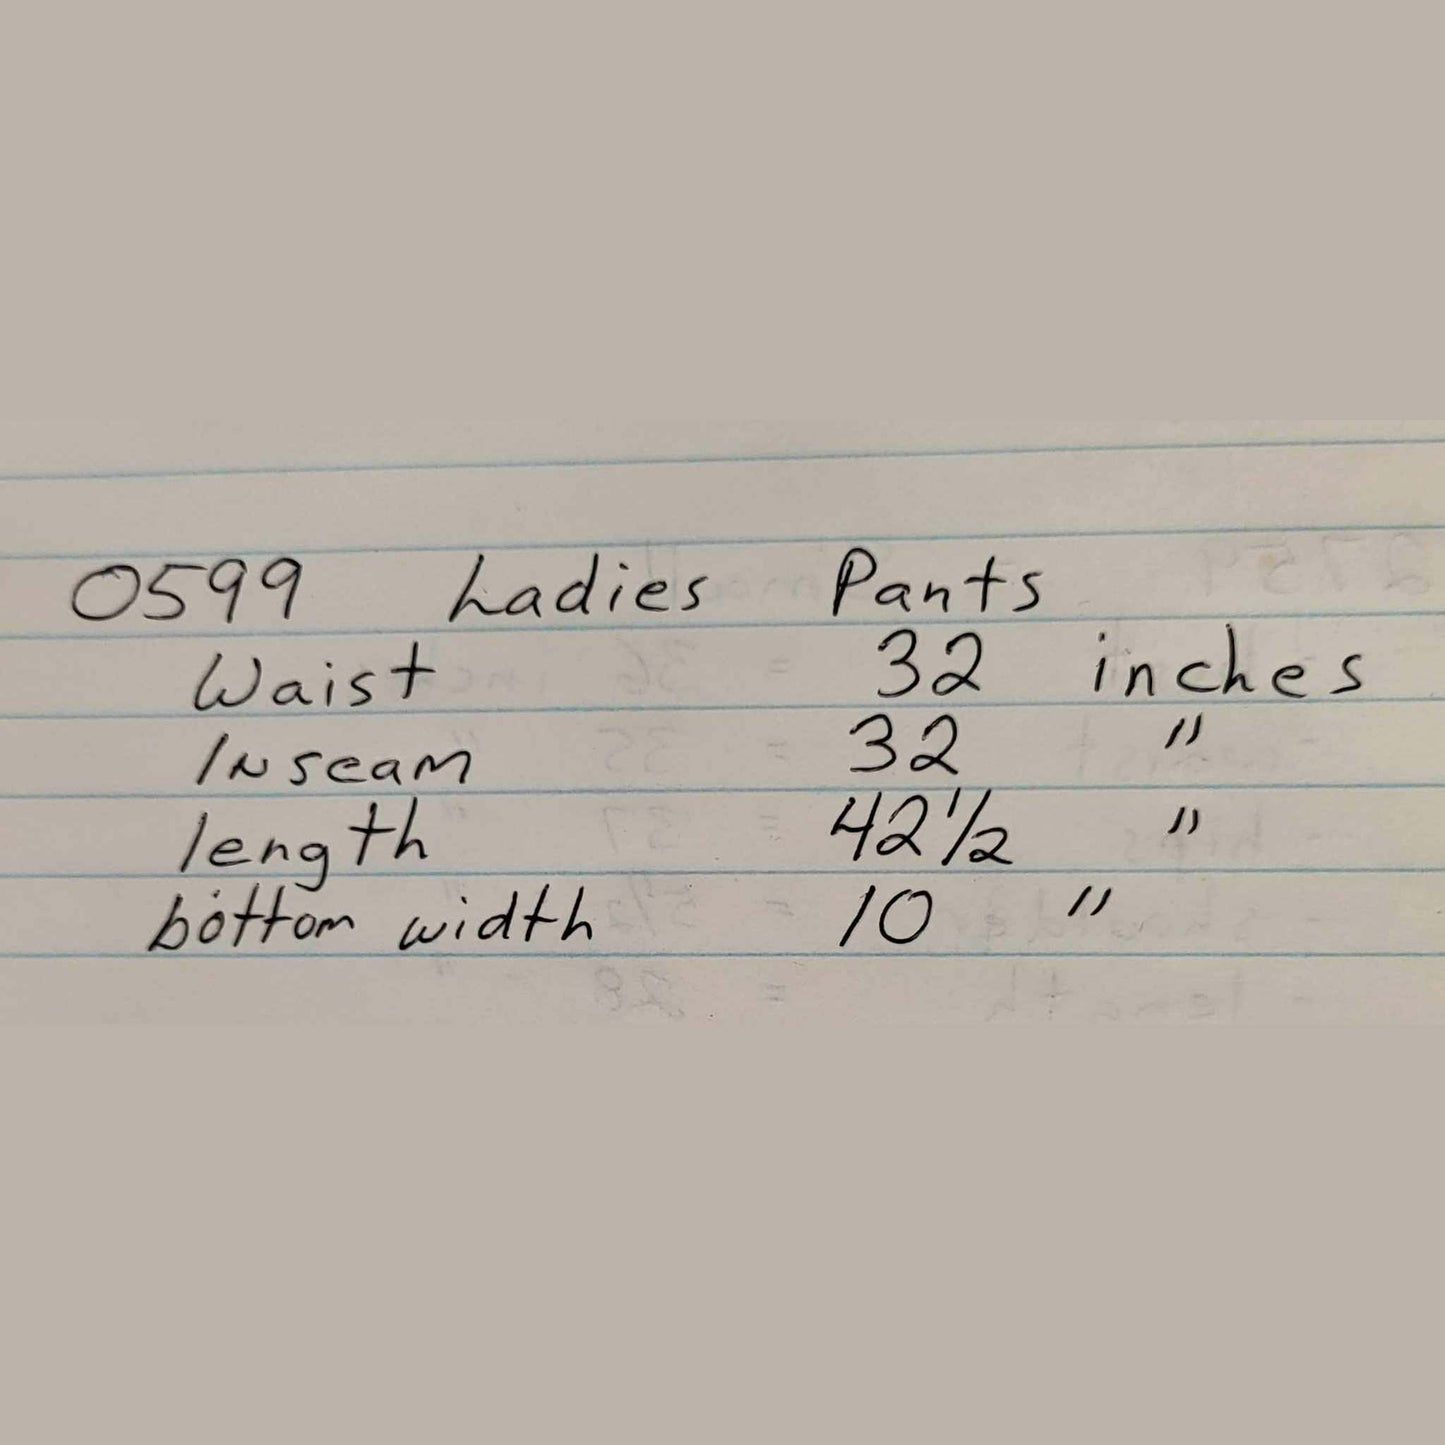 0599 Ladies Pants
Waist 32 inches
Inseam 32 "
length 42 1/2 "
bottom width 10 "